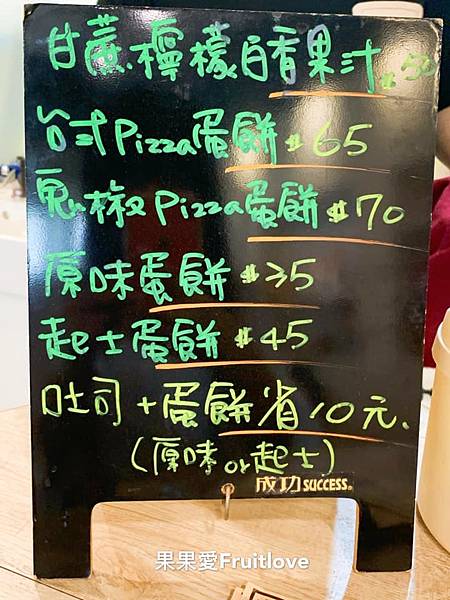 甘蔗檸檬百香果汁$50
台式Pizza蛋餅$65
鬼椒Pizza蛋餅$70
原味蛋餅$35
起士蛋餅$45
吐司+蛋餅省10元.
(原味or起士)
成功SUCCESS®
果果愛Fruitlove